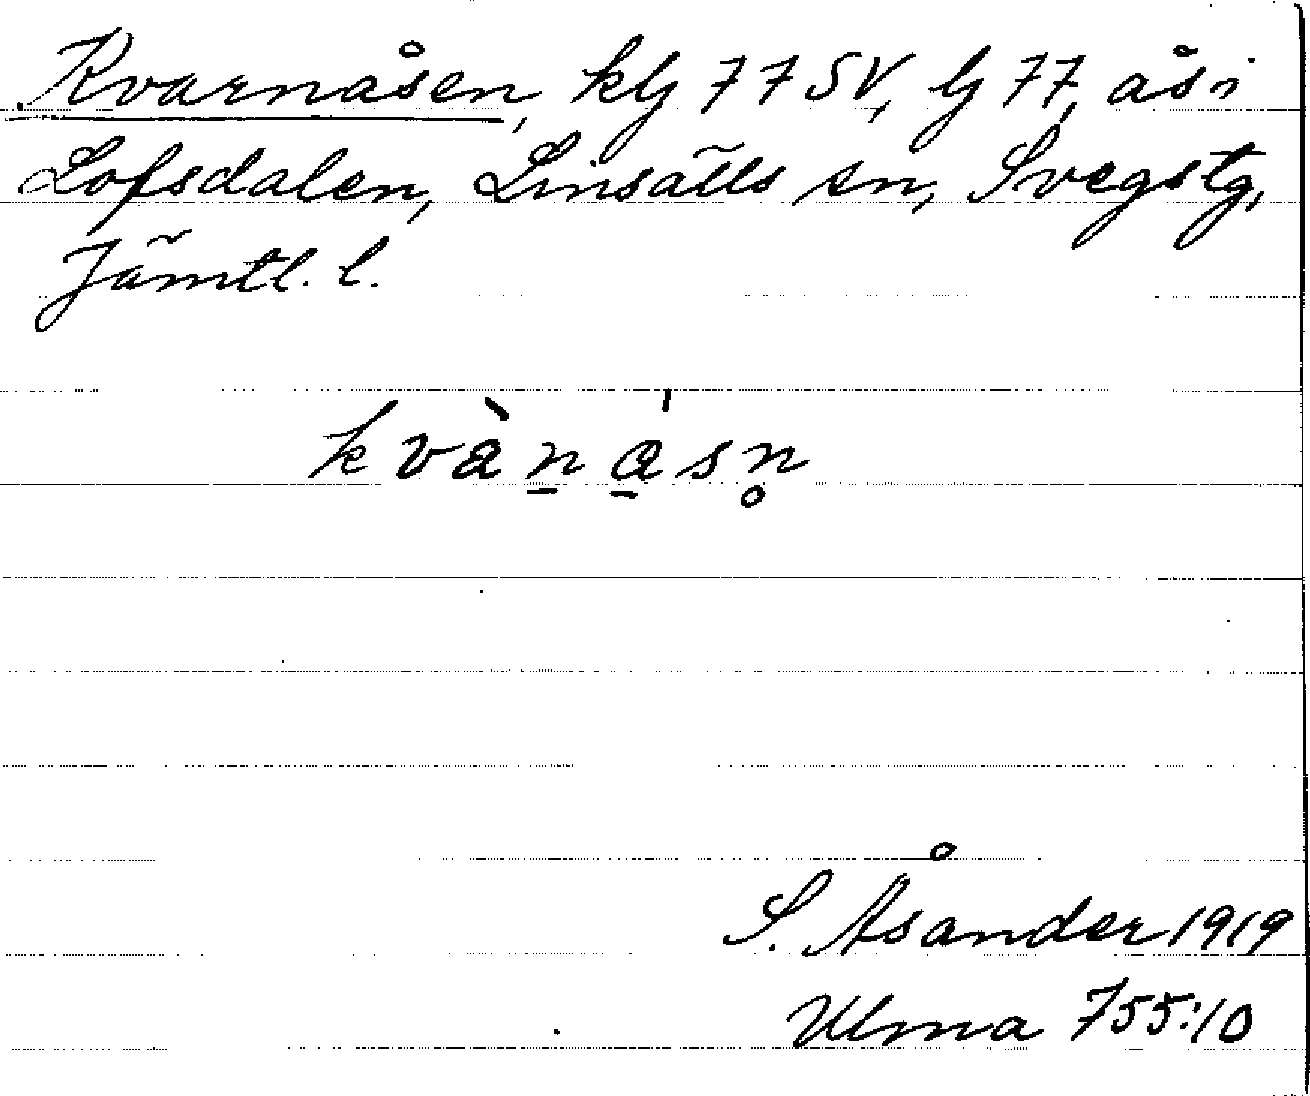 Kvarnåsen, klj 77 SV, lj 77, ås i
Lofsdalen, Linsälls sn, Svegs tg,
Jämtl. l.
kvàn̠a̠̍sn̥
S. Åsander 1919
Ulma 755:10